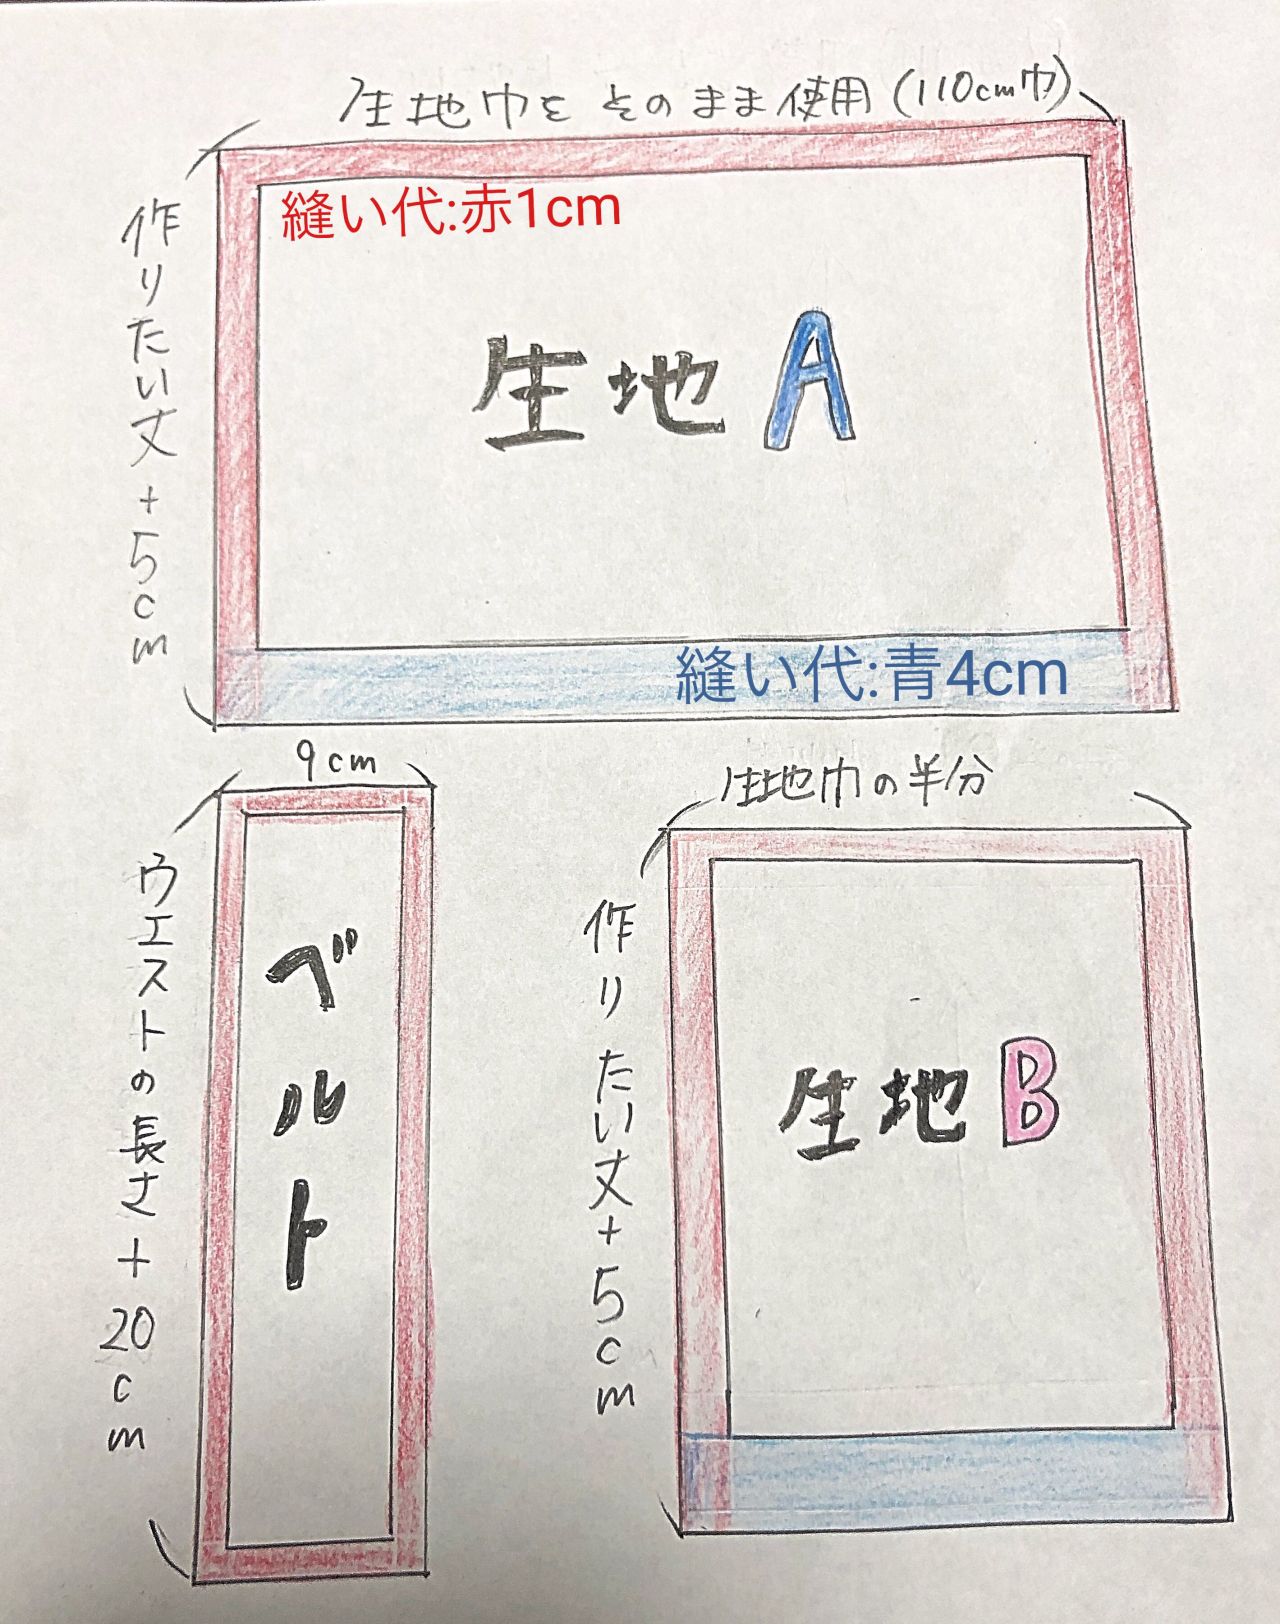 生地巾をそのまま使用(110cm巾)
縫い代:赤1cm
作りたい丈+5cm
生地A
縫い代:青4cm
9cm
ウエストの長さ+20cm
ベルト
生地巾の半分
作りたい丈+5cm
生地B